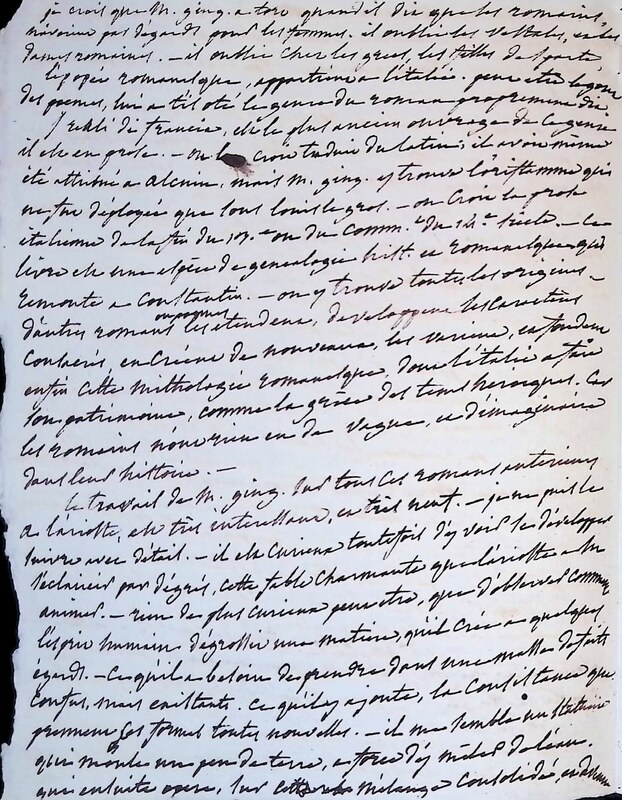 je crois que M. ging. a tort quand il dit que les romains,
n'avoient pas d'égards pour les femmes. il oublie les vestales, et les
dames romaines. – il oublie chez les grecs, les filles de sparte,
l'epopée romanesque, appartient a l'italie. peut etre le gout
des poemes, lui a t'il oté le genre du roman proprement dit
I reali di francia, est le plus ancien ouvrage de ce genre
il est en prose. – on le croit traduit du latin; il avoit même
été attribué a alcuin, mais M. ging. y trouve l'oriflamme qui
ne fut déployée que sous louis le gros. – on croit la prose
italienne de la fin du 13.e ou du comm.t du 14.e siècle. – ce
livre est une espèce de genealogie hist. et romanesque qui
remonte a Constantin. – on y trouve toutes les origines –
d'autres romans ou poemes les etendent, developpent les caractères
consacrés, en créent de nouveaux, les varient, et fondent
enfin cette mithologie romanesque, dont l'italie a fait
son patrimoine, comme la grèce des tems heroiques. Car
les romains n'ont rien eu de vague, et d'imaginaire
dans leur histoire. –
le travail de M. ging. sur tous ces romans anterieurs
a l'arioste, est très interessant, et très neuf. – je ne puis le
suivre avec détail. – il est curieux toutefois d'y voir se développer
s'éclaircir par dégrés, cette fable charmante que l'arioste a su
animer. – rien de plus curieux peut etre, que d'observer comment
l'esprit humain dégrossit une matiere, qu'il crée a quelques
égards. – ce qu'il a besoin de prendre dans une masse de faits
confus, mais existants. ce qu'il y ajoute, la consistance que
prennent ces formes toutes nouvelles. – il me semble un statuaire
qui moule un peu de terre, a force d'y mêler de l'eau.
qui ensuite opere, sur cette mélange consolidé, et devenu